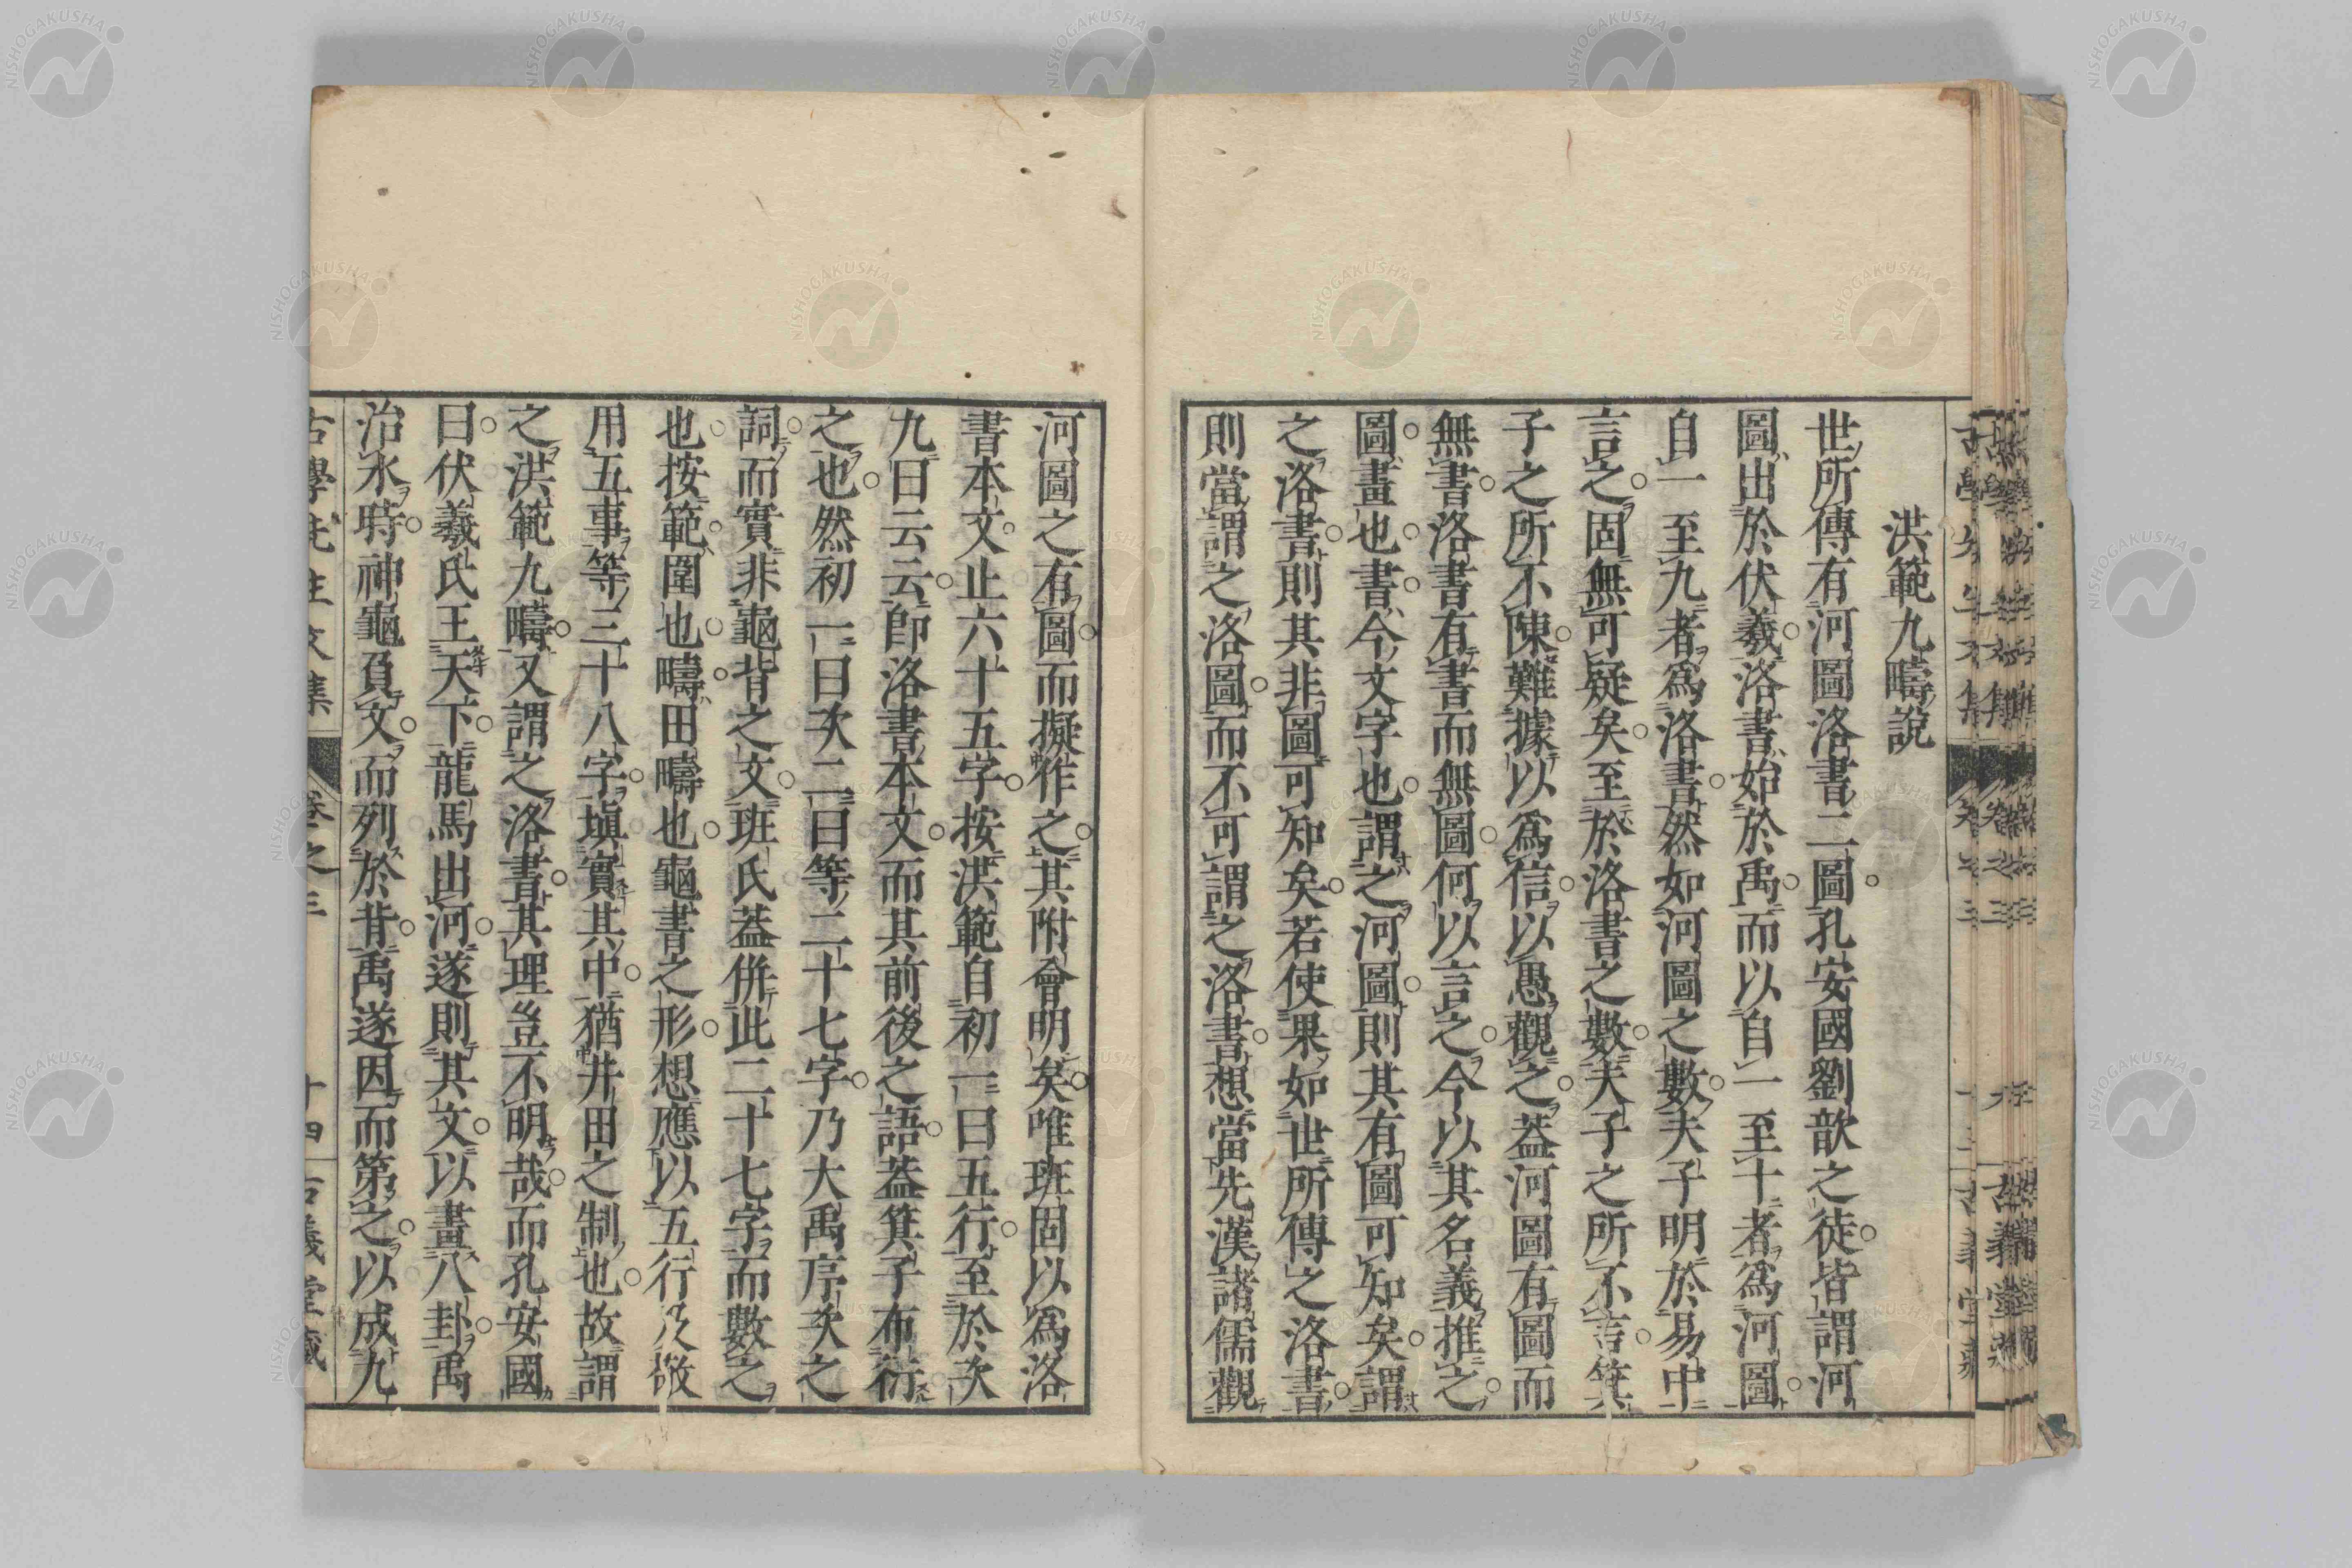 洪範九疇說
世所傳有河圖洛書二圖孔安國劉歆之徒皆謂河
圖出於伏羲洛書始於禹而以自一至十者爲河圖
自一至九者爲洛書然如河圖之數夫子明於易中
言之固無可疑矣至於洛書之數夫子之所不言箕
子之所不陳難據以爲信以愚觀之葢河圖有圖而
無書洛書有書而無圖何以言之今以其名義推之
圖畫也書今文字也謂之河圖則其有圖可知矣謂
之洛書則其非圖可知矣若使果如世所傳之洛書
則當謂之洛圖而不可謂之洛書想當先漢諸儒觀
河圖之有圖而擬作之其附會明矣唯班固以爲洛
書本文止六十五字按洪範自初一曰五行至於次
九曰云云卽洛書本文而其前後之語葢箕子布衍
之也然初一曰次二曰等二十七字乃大禹序次之
詞而實非龜背之文班氏葢併此二十七字而數之
也按範圍也疇田疇也龜書之形想應以五行及敬
用五事等三十八字塡實其中猶井田之制也故謂
之洪範九疇又謂之洛書其理豈不明哉而孔安國
曰伏羲氏王天下龍馬出河遂則其文以畫八卦禹
治水時神龜負文而列於背禹遂因而第之以成九
古學先生文集 卷之三 十四 古義堂藏
NISHOGAKUSHA